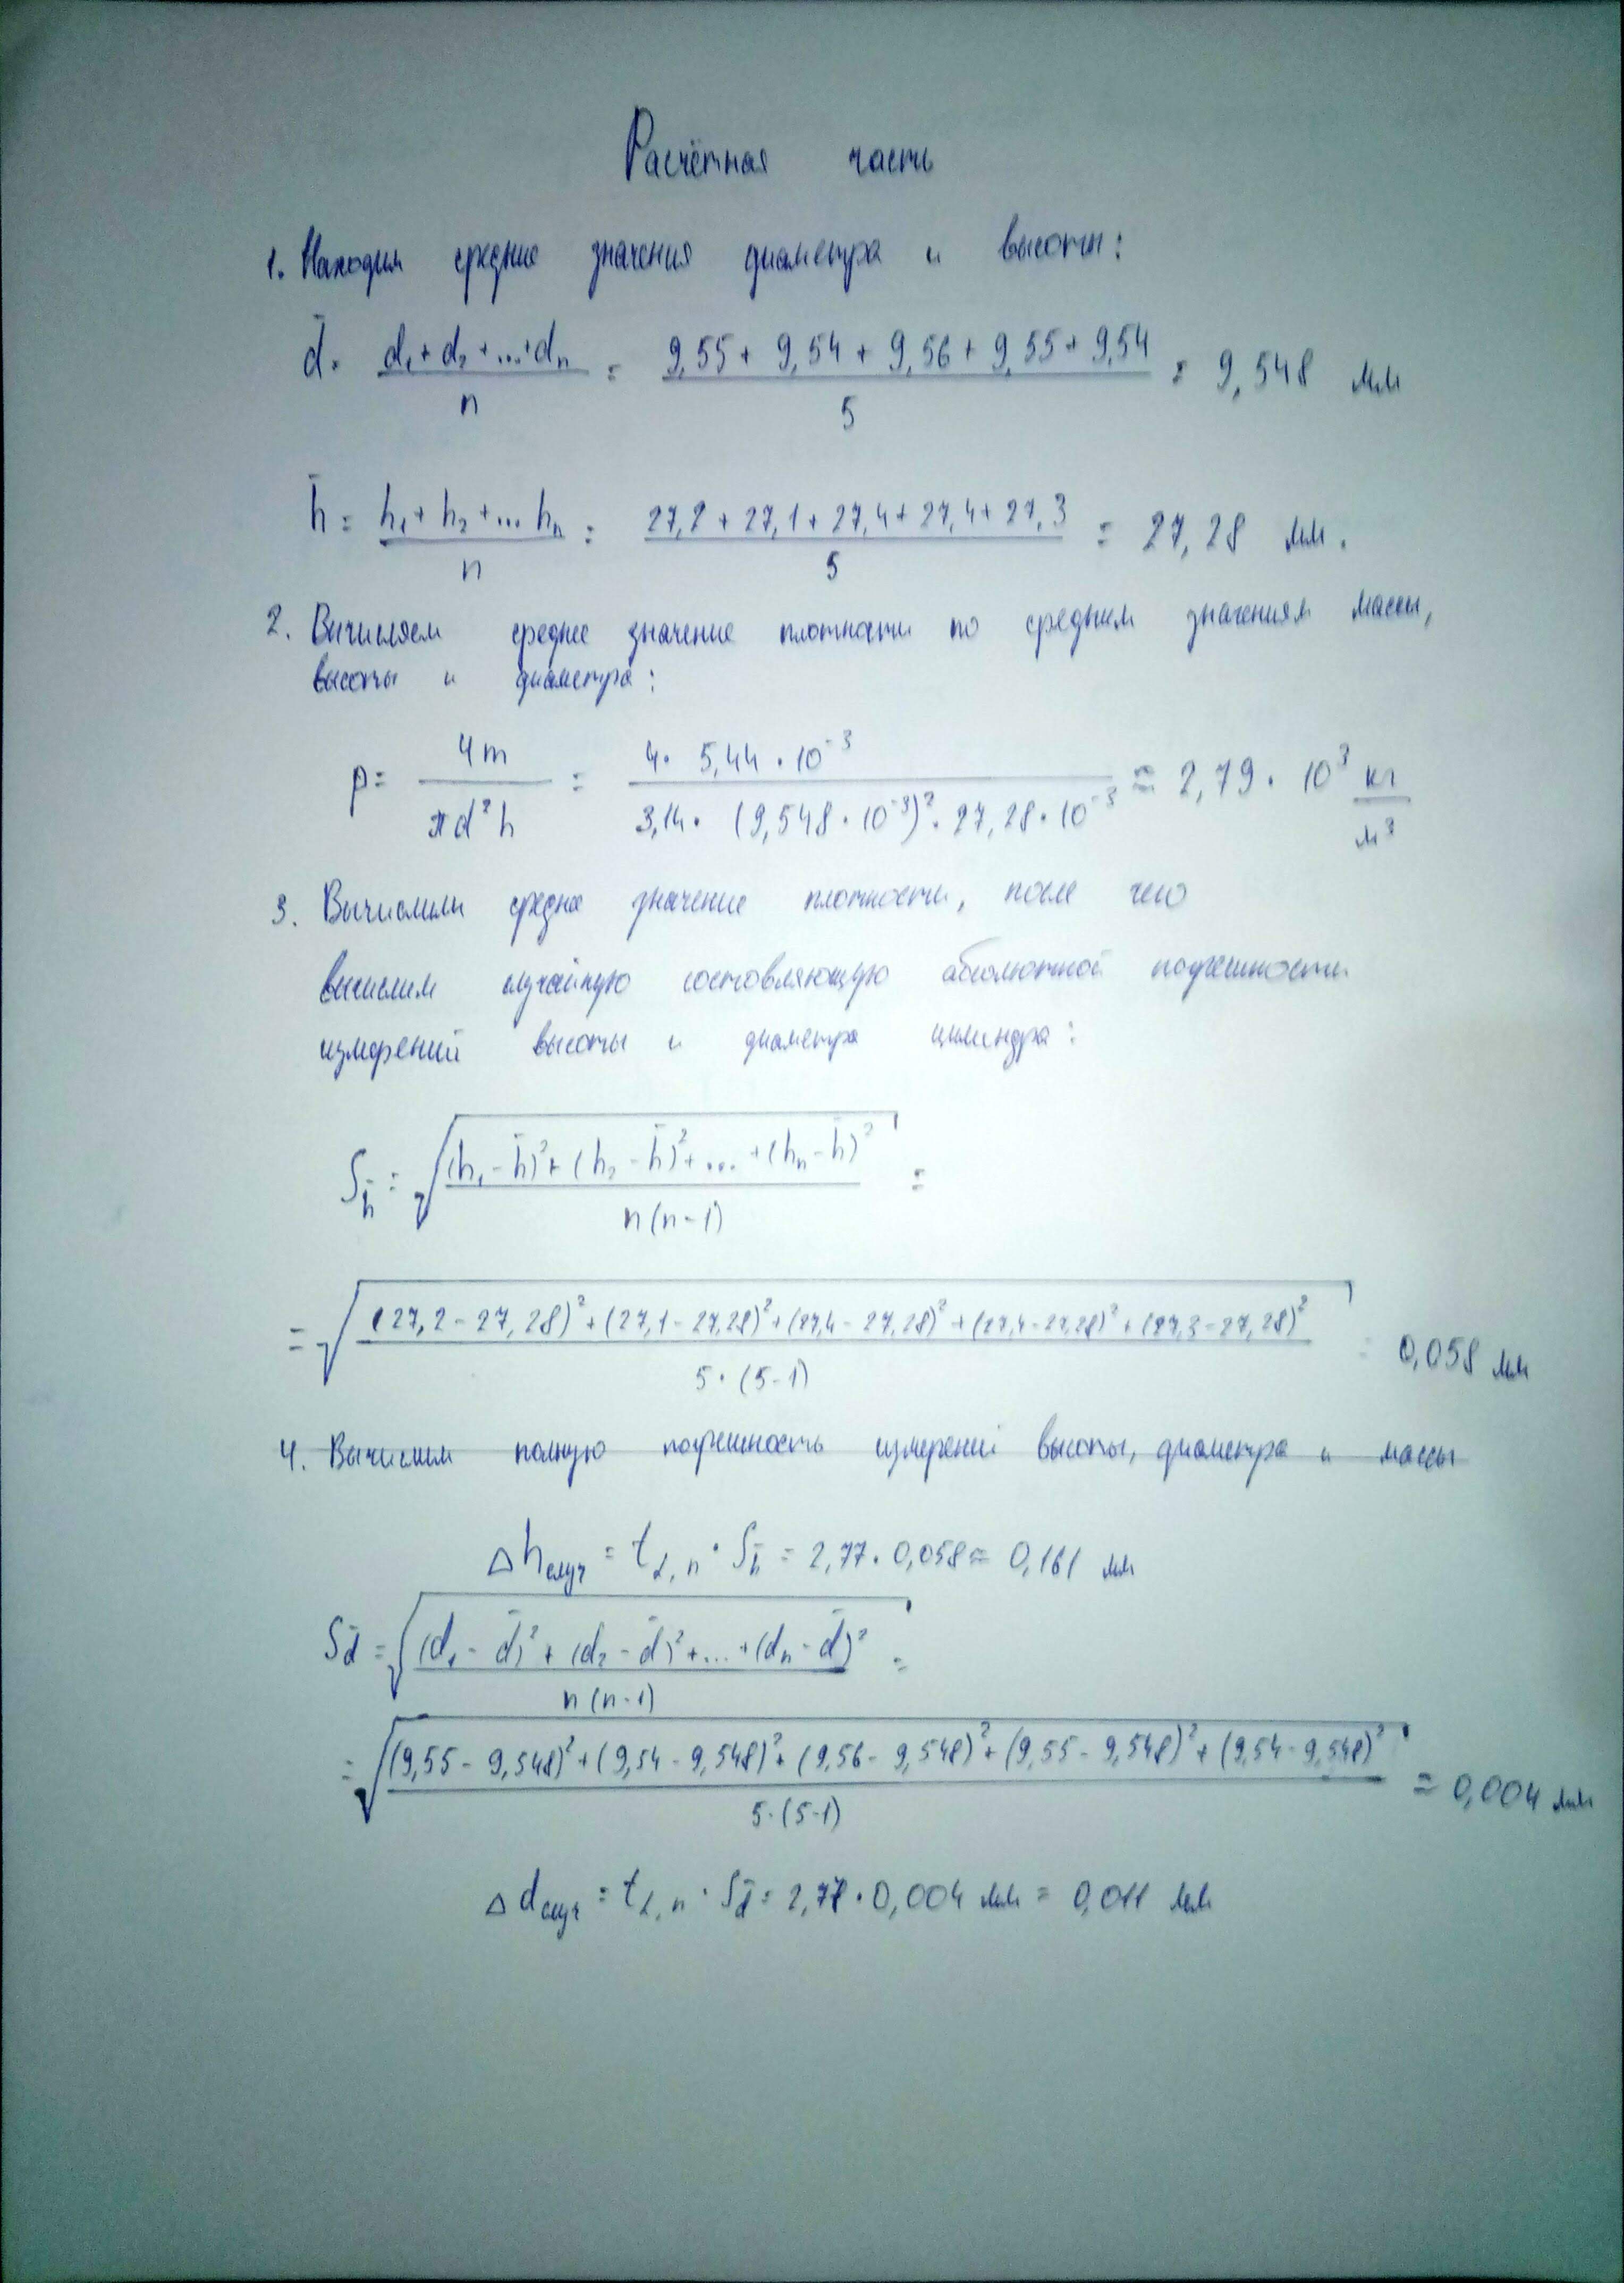 Расчётная часть
1. Находим средние значения диаметра и высоты:
d̄ = (d₁ + d₂ + ... + dₙ) / n = (9,55 + 9,54 + 9,56 + 9,55 + 9,54) / 5 = 9,548 мм
h̄ = (h₁ + h₂ + ... hₙ) / n = (27,2 + 27,1 + 27,4 + 27,4 + 27,3) / 5 = 27,28 мм.
2. Вычисляем среднее значение плотности по средним значениям массы,
высоты и диаметра:
ρ = 4m / πd²h = 4 · 5,44 · 10⁻³ / 3,14 · (9,548 · 10⁻³)² · 27,28 · 10⁻³ = 2,79 · 10³ кг/м³
3. Вычислили среднее значение плотности, после чего
вычислим случайную составляющую абсолютной погрешности
измерений высоты и диаметра цилиндра:
S_h̄ = √((h₁ - h̄)² + (h₂ - h̄)² + ... + (hₙ - h̄)² / n(n-1)) =
= √((27,2 - 27,28)² + (27,1 - 27,28)² + (27,4 - 27,28)² + (27,4 - 27,28)² + (27,3 - 27,28)² / 5 · (5-1)) = 0,058 мм
4. Вычислим полную погрешность измерений высоты, диаметра и массы
Δhслуч = t_α,n · S_h̄ = 2,77 · 0,058 = 0,161 мм
S_d̄ = √((d₁ - d̄)² + (d₂ - d̄)² + ... + (dₙ - d̄)² / n(n-1)) =
= √((9,55 - 9,548)² + (9,54 - 9,548)² + (9,56 - 9,548)² + (9,55 - 9,548)² + (9,54 - 9,548)² / 5·(5-1)) = 0,004 мм
Δdслуч = t_α,n · S_d̄ = 2,77 · 0,004 мм = 0,011 мм